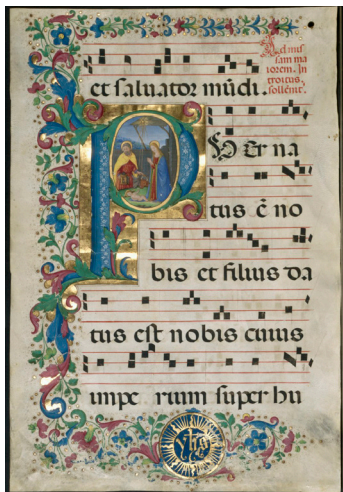 et saluator mũdi.
Ad mis
sam ma
iorem. In
troitus.
sollẽnit.
PUEr na
tus ẽ no
bis et filius da
tus est nobis cuius
impe rium super hu
yhs